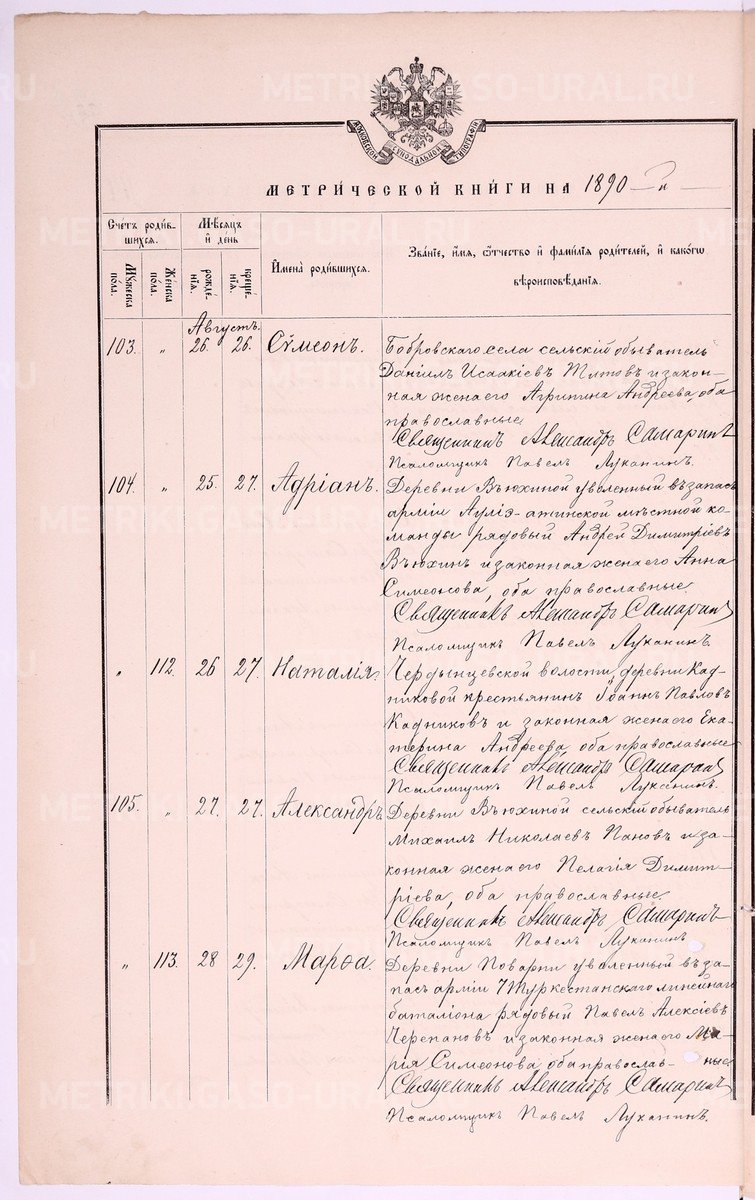 МОСКОВСКОЙ СѴНОДАЛЬНОЙ ТИПОГРАФІИ
МЕТРИ́ЧЕСКОЙ КНИ́ГИ НА 1890 г.
Сче́тъ роди́в-
шихся.
Мꙋжеска
по́ла.
Же́нска
по́ла.
Мѣ́сѧцъ
и҆ де́нь
рожде́-
нїѧ.
креще́-
нїѧ.
И҆мена̀ роди́вшихсѧ.
Зва́нїе, и҆́мѧ, ѻ҆́тчество и҆ фамилїѧ роди́телей, и҆ како́гѡ
вѣроисповѣ́данїѧ.
Августъ.
103. „ 26. 26. Сѵмеонъ.
Бобровскаго села сельскій обыватель
Даніилъ Исаакіевъ Титовъ и закон-
ная жена его Агрипина Андреева, оба
православные
Священникъ Александръ Самаринъ
Псаломщикъ Павелъ Луканинъ.
104. „ 25. 27. Адріанъ.
Деревни Вьюхиной уволенный въ запасъ
арміи Ауліэ-атинской мѣстной ко-
манды рядовый Андрей Димитріевъ
Вьюхинъ и законная жена его Анна
Симеонова, оба православные.
Священникъ Александръ Самаринъ
Псаломщикъ Павелъ Луканинъ.
„ 112. 26 27. Наталія
Чердынцевской волости, деревни Кад-
никовой крестьянинъ Іоаннъ Павловъ
Кадниковъ и законная жена его Ека-
терина Андреева, оба православные
Священникъ Александръ Самаринъ
Псаломщикъ Павелъ Луканинъ.
105. „ 27. 27. Александръ
Деревни Вьюхиной сельскій обыватель
Михаилъ Николаевъ Пановъ и за-
конная жена его Пелагія Димит-
ріева, оба православные.
Священникъ Александръ Самаринъ
Псаломщикъ Павелъ Луканинъ
„ 113. 28 29. Марѳа.
Деревни Поварни уволенный въ за-
пасъ арміи 7 Туркестанскаго линейнаго
баталіона рядовый Павелъ Алексіевъ
Черепановъ и законная жена его Ма-
рія Симеонова оба православ-ные
Священникъ Александръ Самаринъ
Псаломщикъ Павелъ Луканинъ.
METRIKI.GASO-URAL.RU